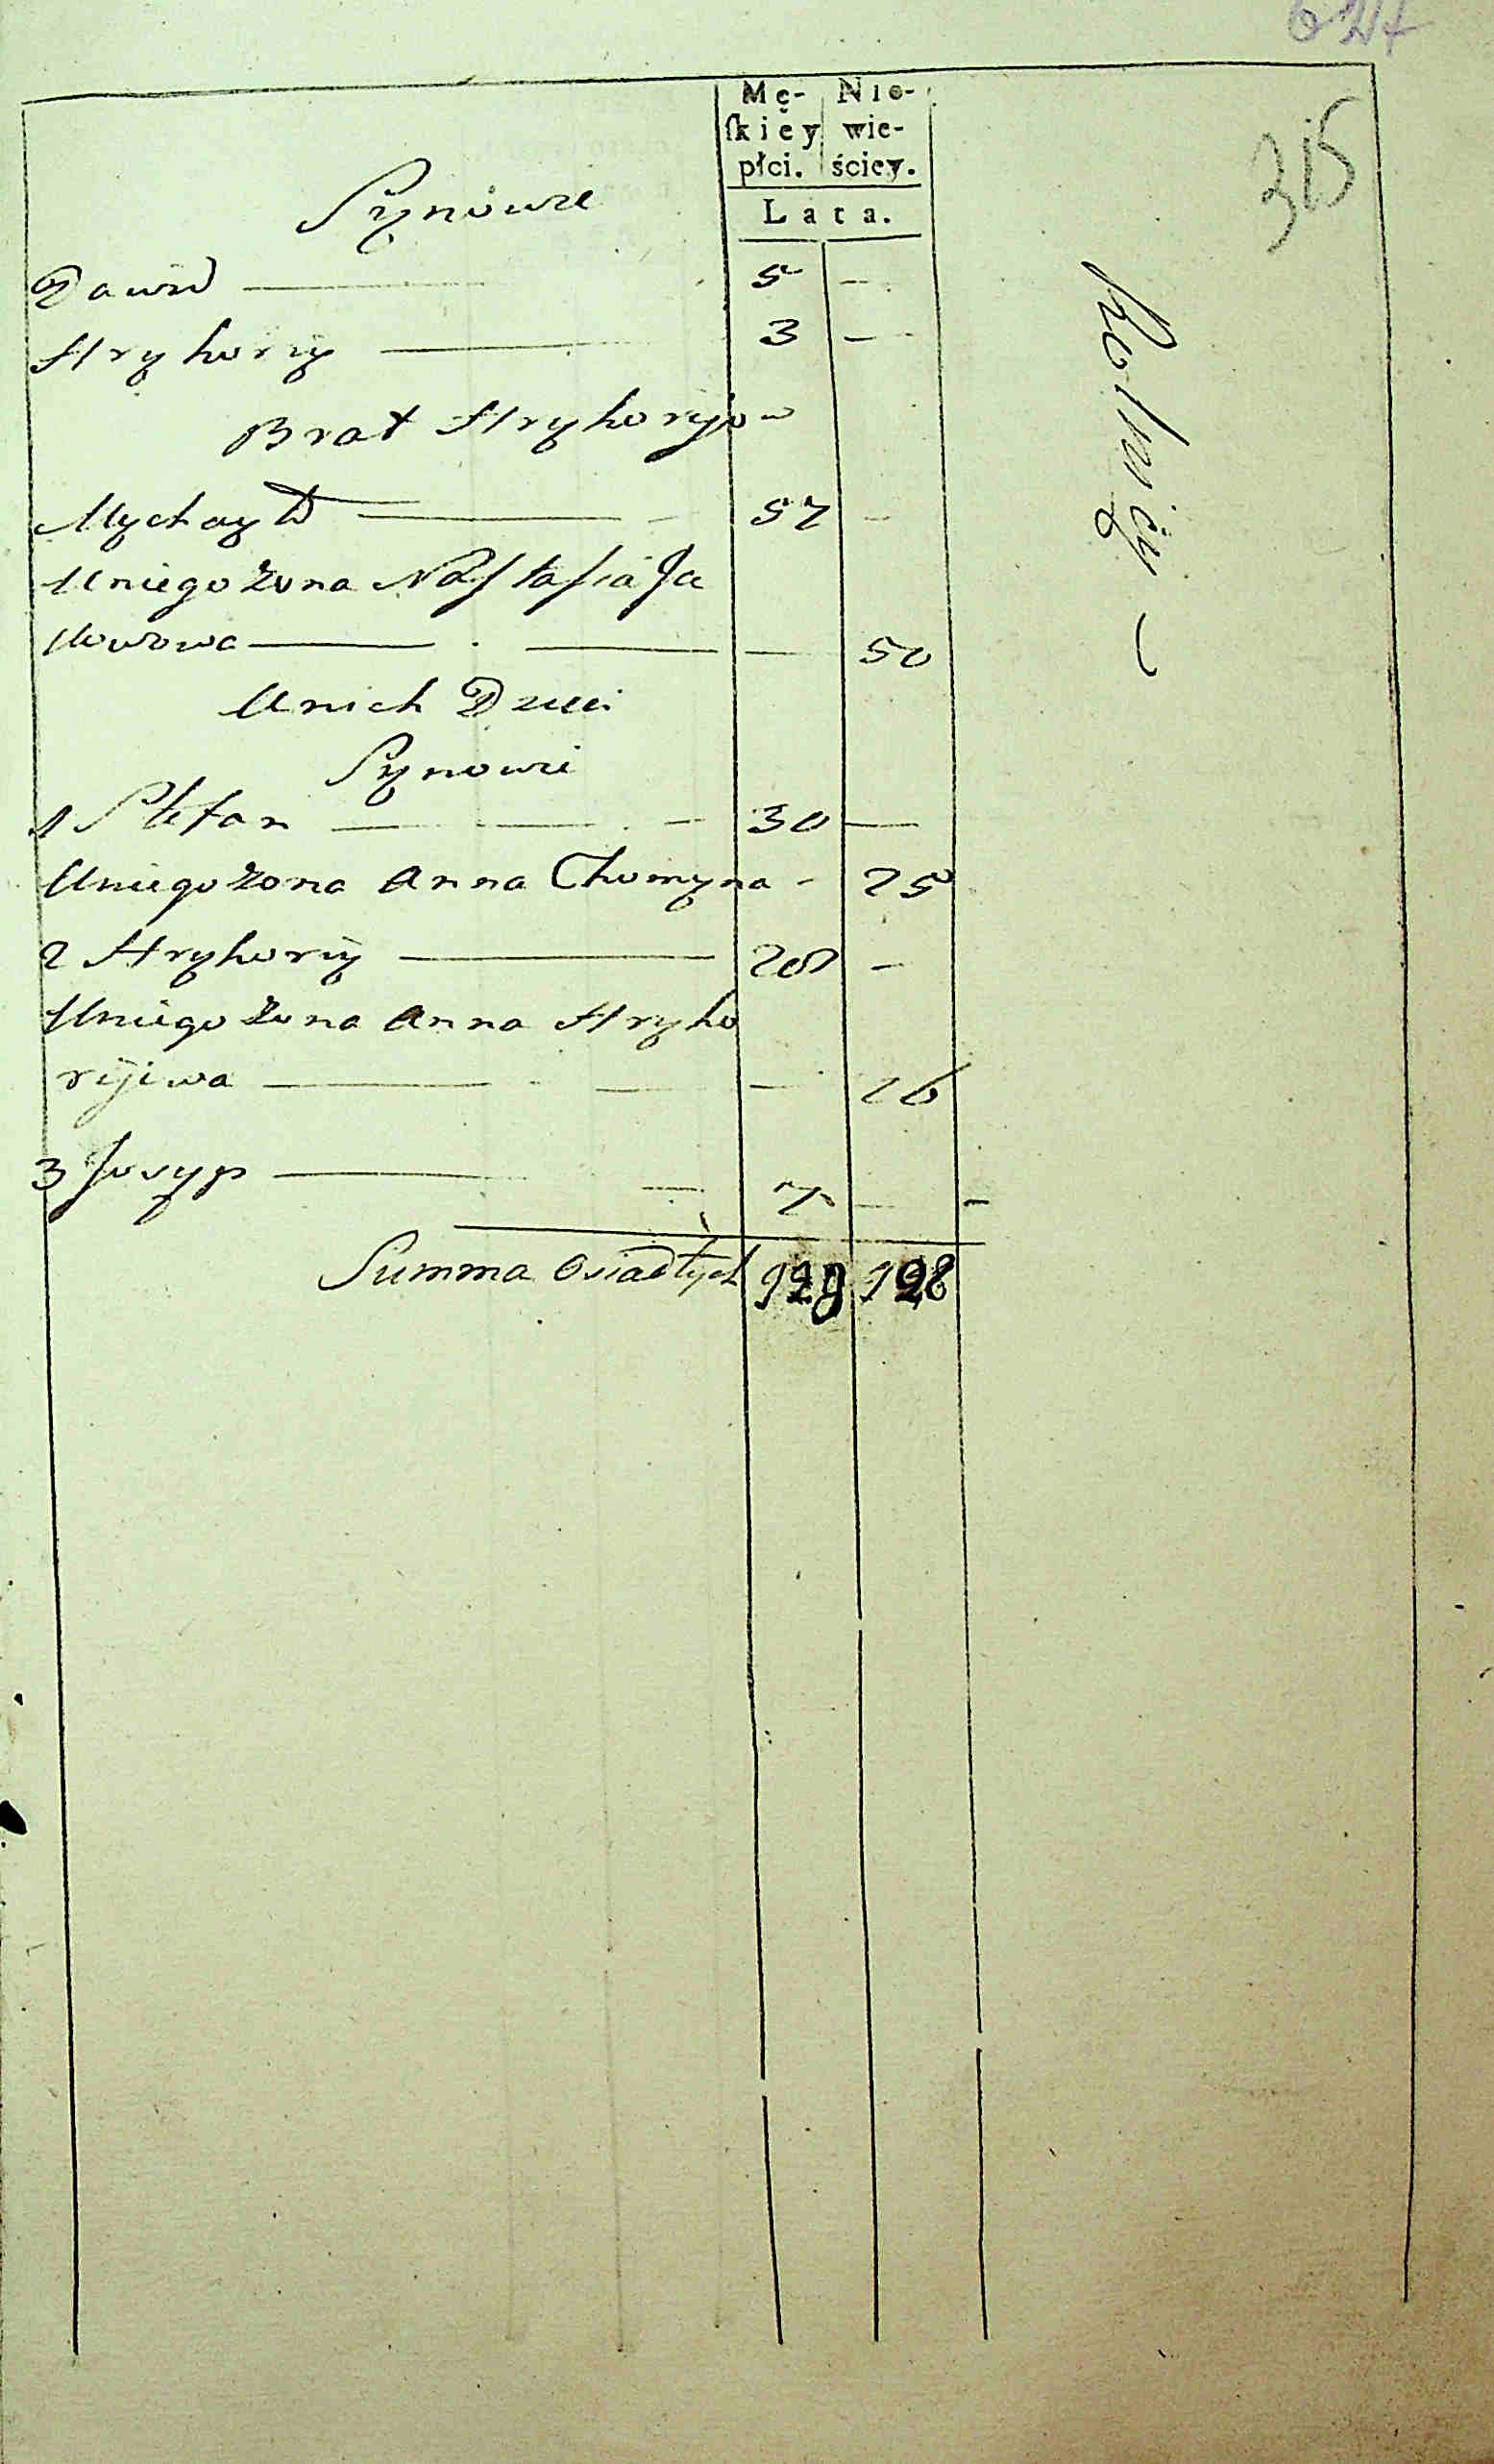 315
Mę- Nie-
ſkiey wie-
płci. ściey.
Lata.
Synowie
Dawid — 5 —
Hryhoriy — 3 —
Brat Hryhoryjow
Mychayło — 57 —
Uniego Żona Nastasia Ja
kowowa — — — 50
Unich Dzieci
Synowie
1 Stefan — — — 30 —
Uniego żona Anna Chomyna - 25
2 Hryhoriy — 20 —
Uniego Żona Anna Hryho
rijiwa — — — 16
3 Josyp — — 7 — —
Summa Osiadłych 129 128
Rolnicy